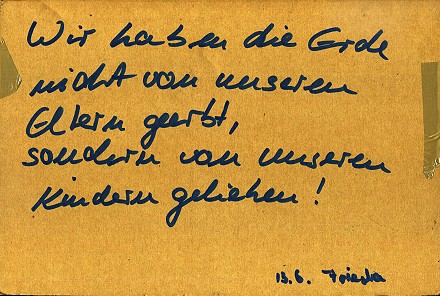 Wir haben die Erde
nicht von unseren
Eltern geerbt,
sondern von unseren
Kindern geliehen!
13.6.